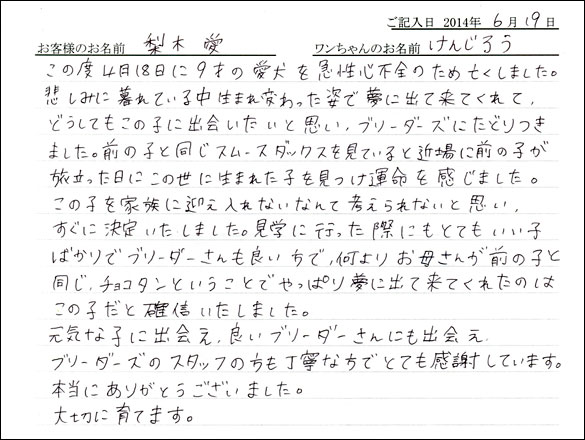 ご記入日 2014年 6月19日
お客様のお名前 梨木 愛 ワンちゃんのお名前 けんじろう
この度4月18日に9才の愛犬を急性心不全のため亡くしました。
悲しみに暮れている中生まれ変わった姿で夢に出て来てくれて、
どうしてもこの子に出会いたいと思い、ブリーダーズにたどりつき
ました。前の子と同じスムースダックスを見ていると近場に前の子が
旅立った日にこの世に生まれた子を見つけ運命を感じました。
この子を家族に迎え入れないなんて考えられないと思い、
すぐに決定いたしました。見学に行った際にもとてもいい子
ばかりでブリーダーさんも良い方で、何よりお母さんが前の子と
同じ、チョコタンということでやっぱり夢に出て来てくれたのは
この子だと確信いたしました。
元気な子に出会え、良いブリーダーさんにも出会え
ブリーダーズのスタッフの方も丁寧な方でとても感謝しています。
本当にありがとうございました。
大切に育てます。